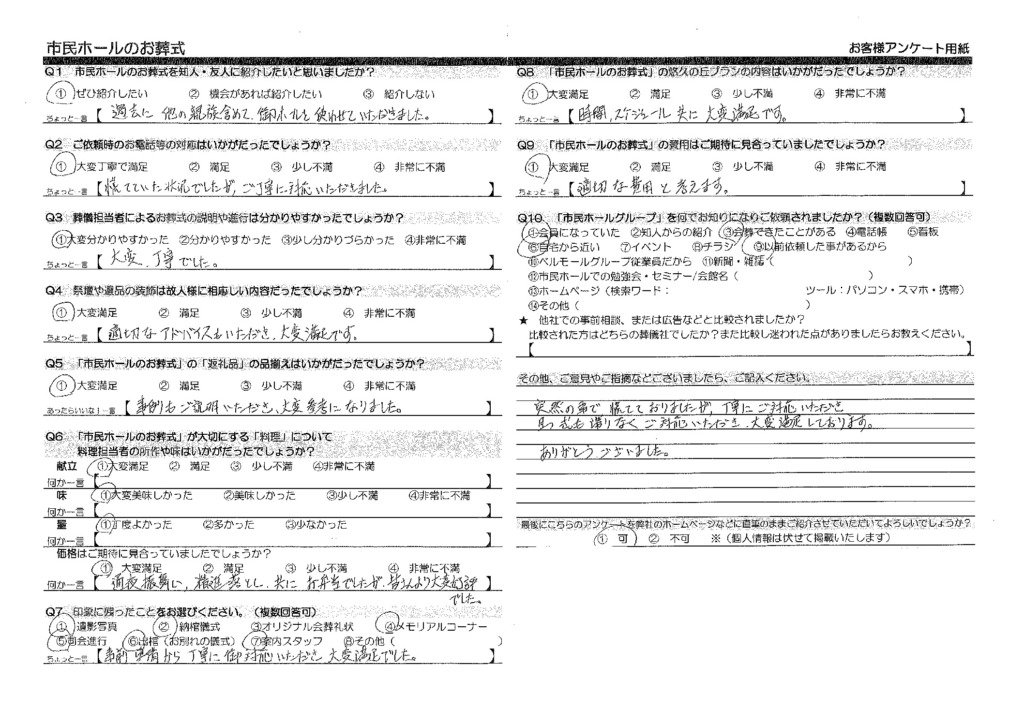 市民ホールのお葬式
お客様アンケート用紙
Q1 市民ホールのお葬式を知人・友人に紹介したいと思いましたか？
① ぜひ紹介したい ② 機会があれば紹介したい ③ 紹介しない
ちょっと一言【過去に他の親族含めて、御ホールを使わせていただきました。】
Q2 ご依頼時のお電話等の対応はいかがだったでしょうか？
① 大変丁寧で満足 ② 満足 ③ 少し不満 ④ 非常に不満
ちょっと一言【慌てていた状況でしたが、ご丁寧に対応いただきました。】
Q3 葬儀担当者によるお葬式の説明や進行は分かりやすかったでしょうか？
①大変分かりやすかった ②分かりやすかった ③少し分かりづらかった ④非常に不満
ちょっと一言【大変、丁寧でした。】
Q4 祭壇や遺品の装飾は故人様に相応しい内容だったでしょうか？
① 大変満足 ② 満足 ③ 少し不満 ④ 非常に不満
ちょっと一言【適切なアドバイスもいただき、大変満足です。】
Q5 「市民ホールのお葬式」の「返礼品」の品揃えはいかがだったでしょうか？
① 大変満足 ② 満足 ③ 少し不満 ④ 非常に不満
あったらいいな！一言【事例もご説明いただき、大変参考になりました。】
Q6 「市民ホールのお葬式」が大切にする「料理」について
料理担当者の所作や味はいかがだったでしょうか？
献立 ①大変満足 ② 満足 ③ 少し不満 ④非常に不満
何か一言【 】
味 ①大変美味しかった ②美味しかった ③少し不満 ④非常に不満
何か一言【 】
量 ①丁度よかった ②多かった ③少なかった
何か一言【 】
価格はご期待に見合っていましたでしょうか？
① 大変満足 ② 満足 ③ 少し不満 ④ 非常に不満
何か一言【通夜振舞い、精進落とし、共にお弁当でしたが、皆さんより大変好評
でした。】
Q7 印象に残ったことをお選びください。（複数回答可）
① 遺影写真 ② 納棺儀式 ③オリジナル会葬礼状 ④メモリアルコーナー
⑤司会進行 ⑥出棺（お別れの儀式） ⑦案内スタッフ ⑧その他（ ）
ちょっと一言【事前準備から丁寧に御対応いただき大変満足でした。】
Q8 「市民ホールのお葬式」の悠久の丘プランの内容はいかがだったでしょうか？
① 大変満足 ② 満足 ③ 少し不満 ④ 非常に不満
ちょっと一言【時間、スケジュール共に大変満足です。】
Q9 「市民ホールのお葬式」の費用はご期待に見合っていましたでしょうか？
① 大変満足 ② 満足 ③ 少し不満 ④ 非常に不満
ちょっと一言【適切な費用と考えます。】
Q10 「市民ホールグループ」を何でお知りになりご依頼されましたか？（複数回答可）
①会員になっていた ②知人からの紹介 ③会葬できたことがある ④電話帳 ⑤看板
⑥自宅から近い ⑦イベント ⑧チラシ ⑨以前依頼した事があるから
⑩ベルモールグループ従業員だから ⑪新聞・雑誌（ ）
⑫市民ホールでの勉強会・セミナー/会館名（ ）
⑬ホームページ（検索ワード： ツール：パソコン・スマホ・携帯）
⑭その他（ ）
★ 他社での事前相談、または広告などと比較されましたか？
比較された方はどちらの葬儀社でしたか？また比較し迷われた点がありましたらお教えください。
【 】
その他、ご意見やご指摘などございましたら、ご記入ください。
突然の事で慌てておりましたが、丁寧にご対応いただき
且つ式も滞りなくご対応いただき、大変満足しております。
ありがとうございました。
最後にこちらのアンケートを弊社のホームページなどに直筆のままご紹介させていただいてよろしいでしょうか？
① 可 ② 不可 ※（個人情報は伏せて掲載いたします）